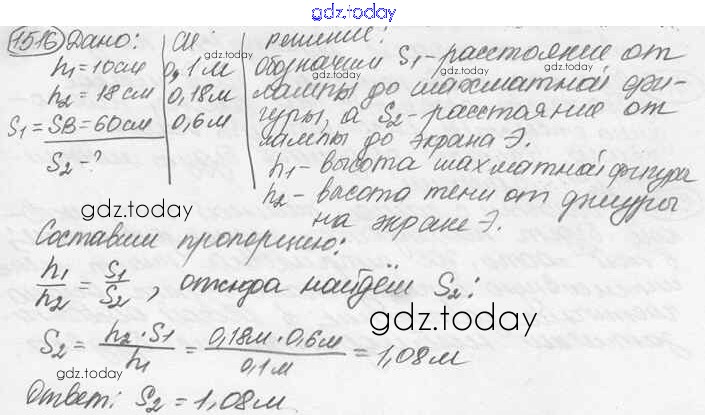 gdz.today
1516 Дано:
h₁ = 10см
h₂ = 18см
S₁ = SB = 60см
S₂ - ?
СИ
0,1м
0,18м
0,6м
gdz.today
решение:
обозначим S₁ - расстояние от
лампы до шахматной фи-
гуры, а S₂ - расстояние от
лампы до экрана Э.
h₁ - высота шахматной фигуры
h₂ - высота тени от фигуры
на экране Э.
gdz.today
gdz.today
gdz.today
Составим пропорцию:
h₁/h₂ = S₁/S₂, откуда найдём S₂:
gdz.today
S₂ = h₂·S₁/h₁ = 0,18м·0,6м/0,1м = 1,08м
Ответ: S₂ = 1,08м
gdz.today